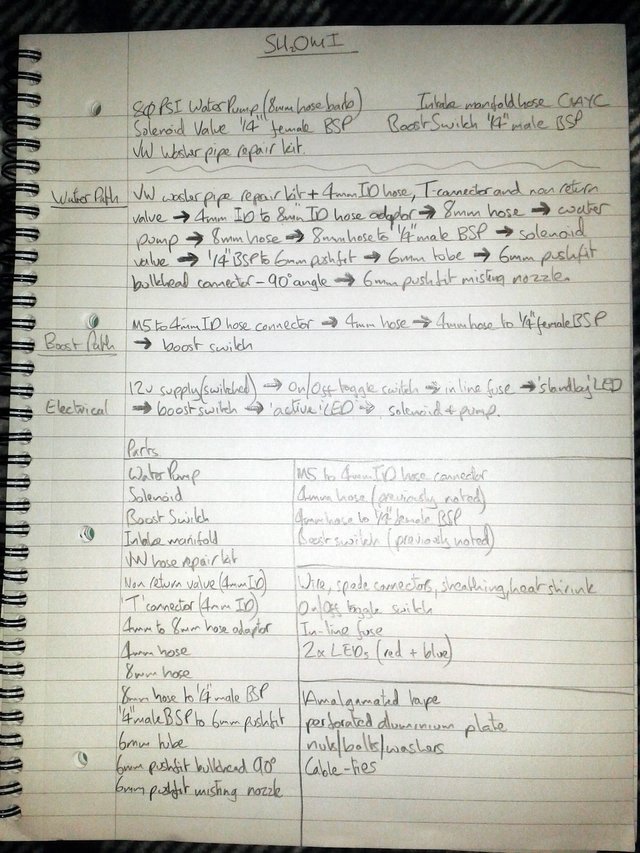 SH2OWI
80 PSI Water Pump (8mm hose barb) Intake manifold hose CAYC
Solenoid Valve 1/4" female BSP Boost Switch 1/4" male BSP
VW Washer pipe repair kit.
Water Path VW washer pipe repair kit + 4mm ID hose, T-connector and non return
valve → 4mm ID to 8mm ID hose adaptor → 8mm hose → water
pump → 8mm hose → 8mm hose to 1/4" male BSP → solenoid
valve → 1/4" BSP to 6mm pushfit → 6mm tube → 6mm pushfit
bulkhead connector - 90° angle → 6mm pushfit misting nozzle.
M5 to 4mm ID hose connector → 4mm hose → 4mm hose to 1/4" female BSP
Boost Path → boost switch
12v supply (switched) → On/Off toggle switch → in line fuse → 'standby' LED
Electrical → boost switch → 'active' LED → solenoid + pump.
Parts
Water Pump
Solenoid
Boost Switch
Intake manifold
VW hose repair kit
Non return valve (4mm ID)
'T' connector (4mm ID)
4mm to 8mm hose adaptor
4mm hose
8mm hose
8mm hose to 1/4" male BSP
1/4" male BSP to 6mm pushfit
6mm tube
6mm pushfit bulkhead 90°
6mm pushfit misting nozzle
M5 to 4mm ID hose connector
4mm hose (previously noted)
4mm hose to 1/4" female BSP
Boost switch (previously noted)
Wire, spade connectors, sheathing, heat shrink
On/Off toggle switch
In-line fuse
2x LEDs (red + blue)
Amalgamated tape
perforated aluminium plate
nuts/bolts/washers
Cable-ties